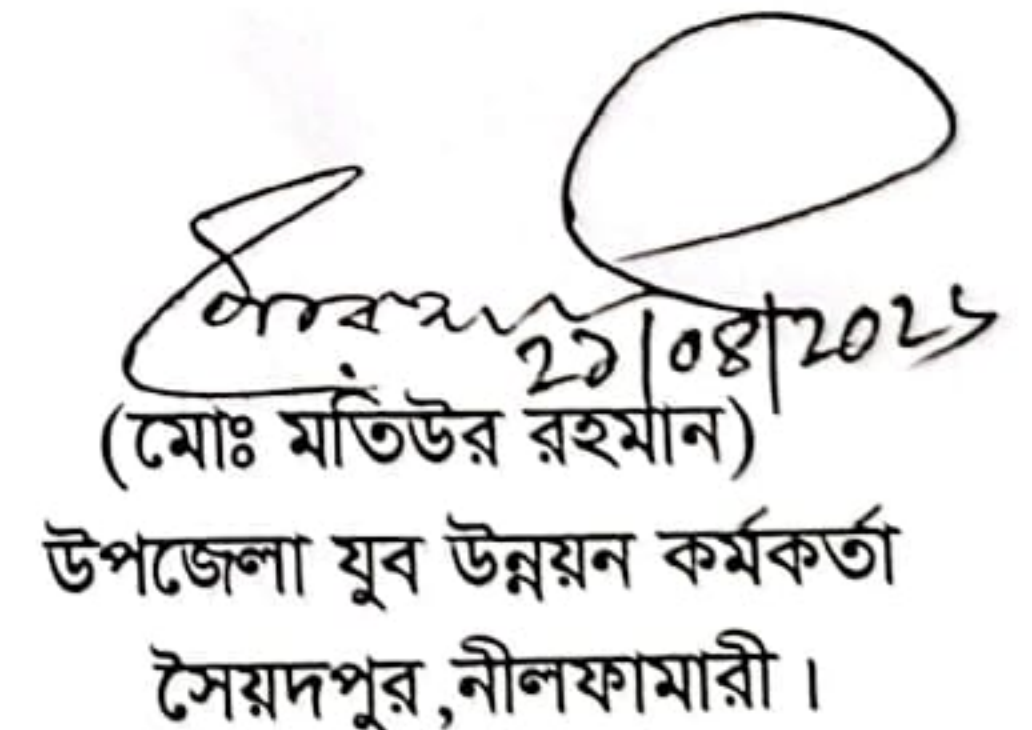 (মোঃ মতিউর রহমান)
উপজেলা যুব উন্নয়ন কর্মকর্তা
সৈয়দপুর,নীলফামারী।